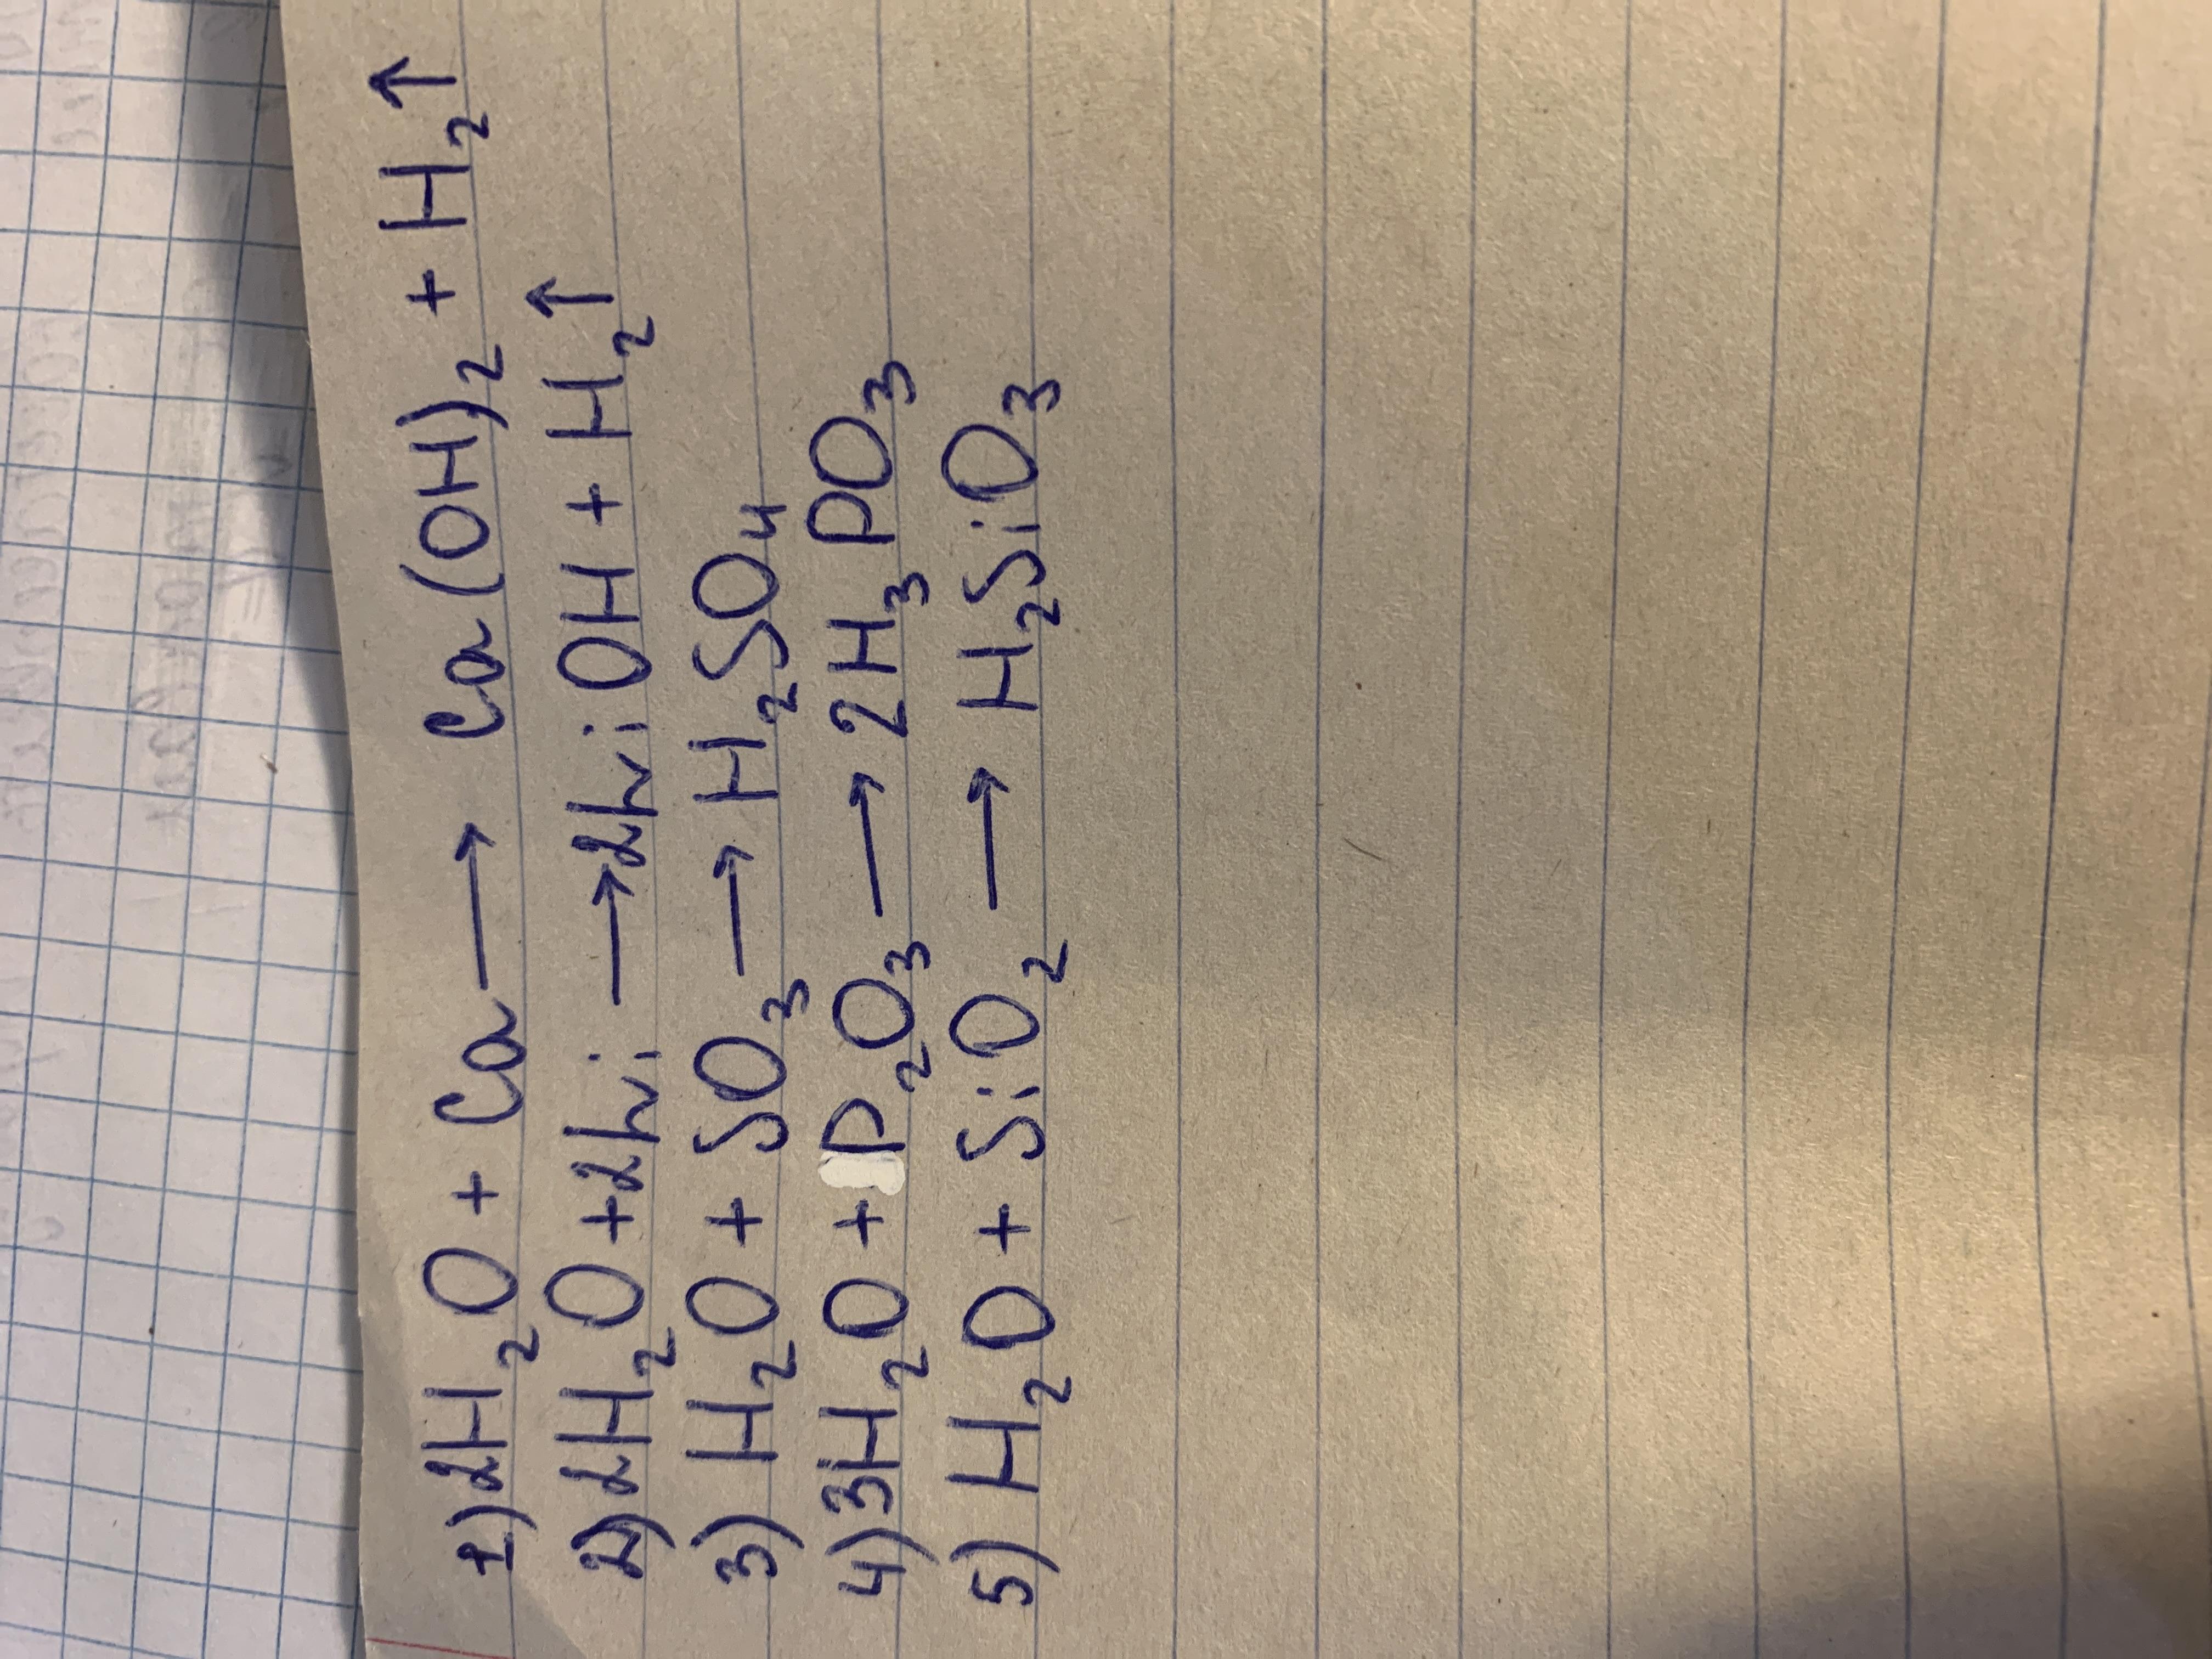 1) 2H₂O + Ca → Ca(OH)₂ + H₂↑
2) 2H₂O + 2Li → 2LiOH + H₂↑
3) H₂O + SO₃ → H₂SO₄
4) 3H₂O + P₂O₃ → 2H₃PO₃
5) H₂O + SiO₂ → H₂SiO₃